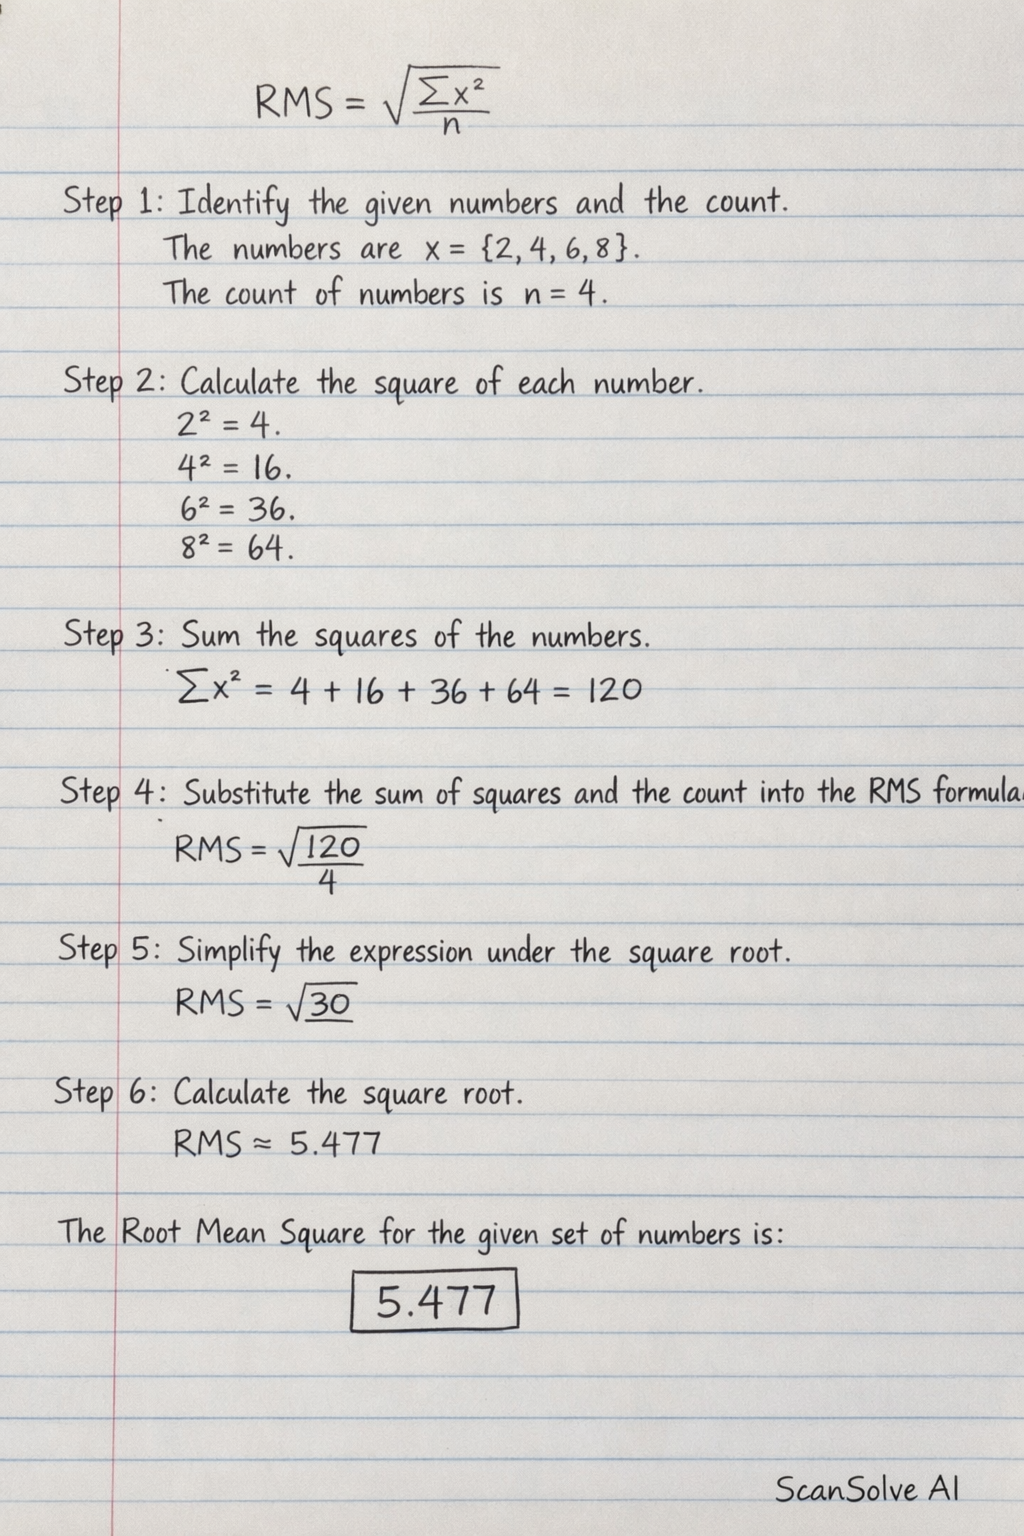 RMS = √(Σx²/n)
Step 1: Identify the given numbers and the count.
The numbers are x = {2, 4, 6, 8}.
The count of numbers is n = 4.
Step 2: Calculate the square of each number.
2² = 4.
4² = 16.
6² = 36.
8² = 64.
Step 3: Sum the squares of the numbers.
Σx² = 4 + 16 + 36 + 64 = 120
Step 4: Substitute the sum of squares and the count into the RMS formula.
RMS = √(120/4)
Step 5: Simplify the expression under the square root.
RMS = √30
Step 6: Calculate the square root.
RMS ≈ 5.477
The Root Mean Square for the given set of numbers is:
5.477
ScanSolve AI